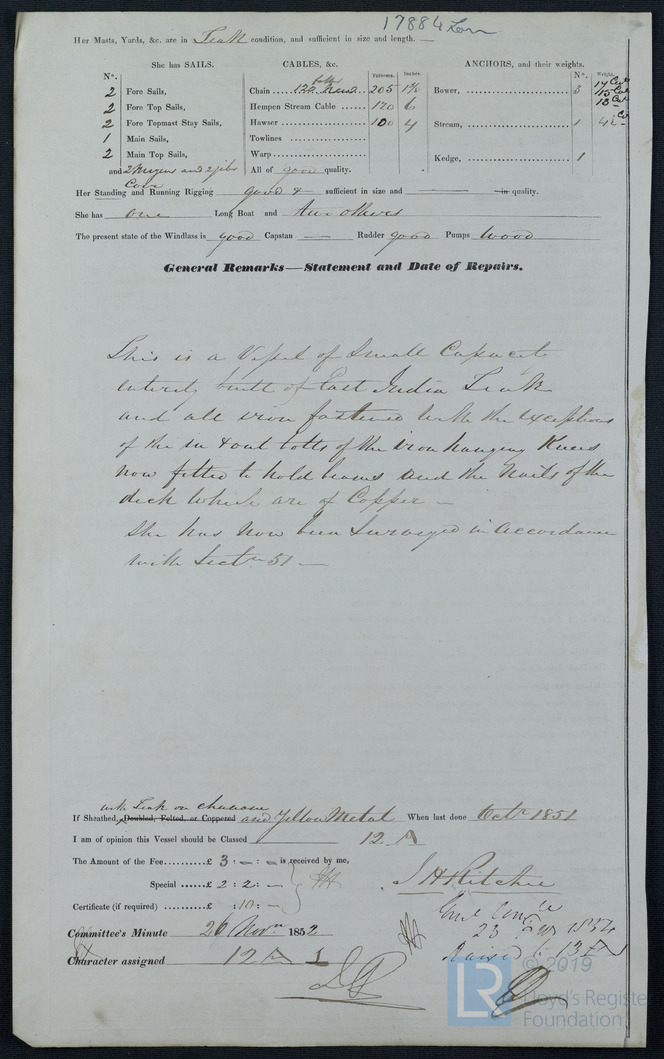 17884 Lon
Her Masts, Yards, &c. are in Teak condition, and sufficient in size and length. —
She has SAILS. CABLES, &c. ANCHORS, and their weights.
Nº. Fathoms. Inches. Nº. Weight.
2 Fore Sails, Chain 205 Bower, 3
2 Fore Top Sails, Hempen Stream Cable 120 6
2 Fore Topmast Stay Sails, Hawser 100 4 Stream, 1
1 Main Sails, Towlines
2 Main Top Sails, Warp Kedge, 1
and 2 and 2 jibs All of good quality.
Coir
Her Standing and Running Rigging good & sufficient in size and — in quality.
She has one Long Boat and two others
The present state of the Windlass is good Capstan — Rudder good Pumps Wood
General Remarks—Statement and Date of Repairs.
This is a Vessel of Small Capacity
entirely built of East India Teak
and all iron fastened with the exceptions
of the in & out bolts of the iron hanging Knees
now fitted to hold beams and the Nails of the
deck which are of Copper —
She has now been Surveyed in accordance
with Sectn 51 —
with Teak on chunam
If Sheathed, Doubled, Felted, or Coppered and Yellow Metal When last done Octr 1851
I am of opinion this Vessel should be Classed 12 A
The Amount of the Fee..........£ 3 : — : — is received by me,
Special ......£ 2 : 2 : —
J H Ritchie
Certificate (if required) .........£ : 10 : —
Committee's Minute 26 Novr 1852
23 1854
Character assigned 12 A 1
Raised 13 A
© 2019
LR Lloyd's Register
Foundation